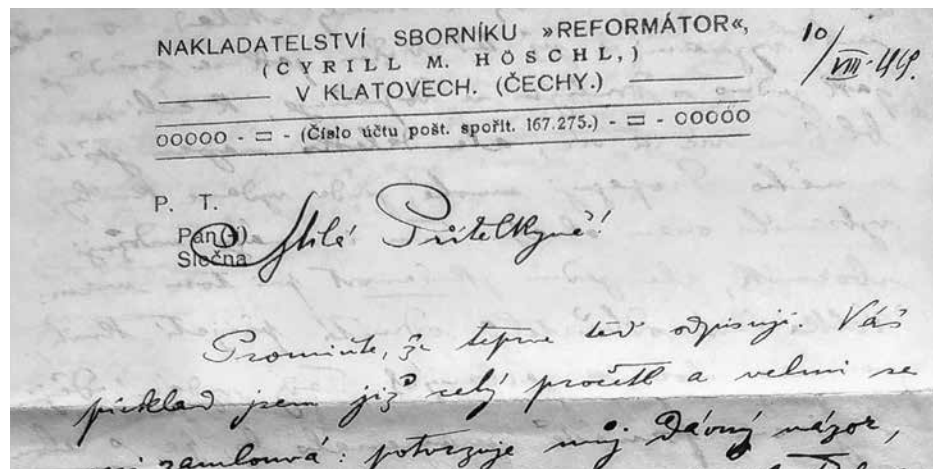 NAKLADATELSTVÍ SBORNÍKU »REFORMÁTOR«,
(CYRILL M. HÖSCHL,)
V KLATOVECH. (ČECHY.)
10/VIII.
OOOOO - = - (Číslo účtu pošt. spořit. 167.275.) - = - OOOOO
P. T.
Pan(-í)
Slečna
Milá Přítelkyně!
Promiňte, že teprve teď odpisuji. Váš
překlad jsem již celý pročetl a velmi se
zamlouvá: potvrzuje můj dávný názor,